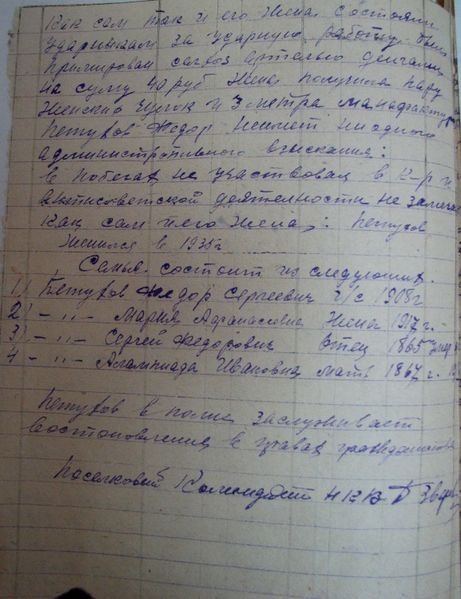 Как сам так и его жена состояли
ударниками за ударную работу был
премирован сельхоз артелью деньгами
на сумму 40 руб жена получила пару
женских чулок и 3 метра манафактур
Петухов Федор неимеет ниодного
административного взыскания:
в побегах не участвовал в к-р и
антисоветской деятельности не замечен
как сам и его жена,: Петухов
женился в 1935 г
Семья состоит из следующих.
1) Петухов Федор Сергеевич г/с 1908 г
2) -"- Мария Афанасовна жена 1917 г.
3) -"- Сергей Федорович отец 1865
4 -"- Ивановна мать 1867 г.
Петухов в полне заслуживает
востоновления в правах гражданства
Поселковый Комендант НКВД